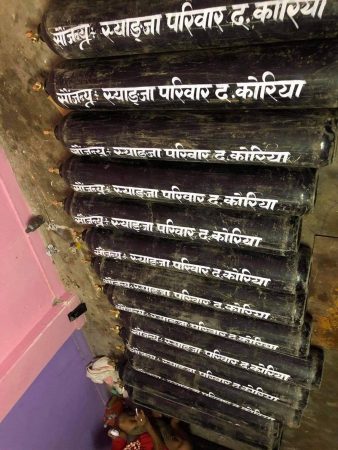 सौजन्य :- स्याङ्जा परिवार द. कोरिया
सौजन्य :- स्याङ्जा परिवार द. कोरिया
सौजन्य :- स्याङ्जा परिवार द. कोरिया
सौजन्य :- स्याङ्जा परिवार द. कोरिया
सौजन्य :- स्याङ्जा परिवार द. कोरिया
सौजन्य :- स्याङ्जा परिवार द. कोरिया
सौजन्य :- स्याङ्जा परिवार द. कोरिया
सौजन्य :- स्याङ्जा परिवार द. कोरिया
सौजन्य :- स्याङ्जा परिवार द. कोरिया